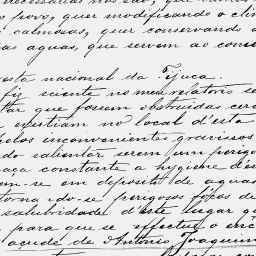 necessarias não só, que
o povo, quer modificando o cli
calmosas, quer conservando a
as aguas, que servem ao cons
esta nacional da Tijuca.
fiz sciente no meu relatorio se
tar que fossem obstruidas cer
existiam no local d'esta
pelos inconvenientes gravissos
do salientar serem um perigo
aça constante a hygiene d'es
em-se em deposito de aguas
torna do-se perigosos fócos de
salubridade d'este lugar q
para que se effectue o enc
açude de Antonio Joaquim